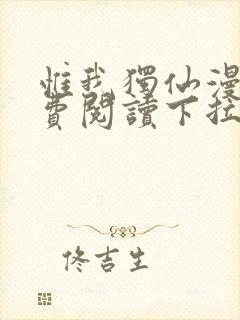 惟我獨仙漫
費閱讀下拉
佟吉生